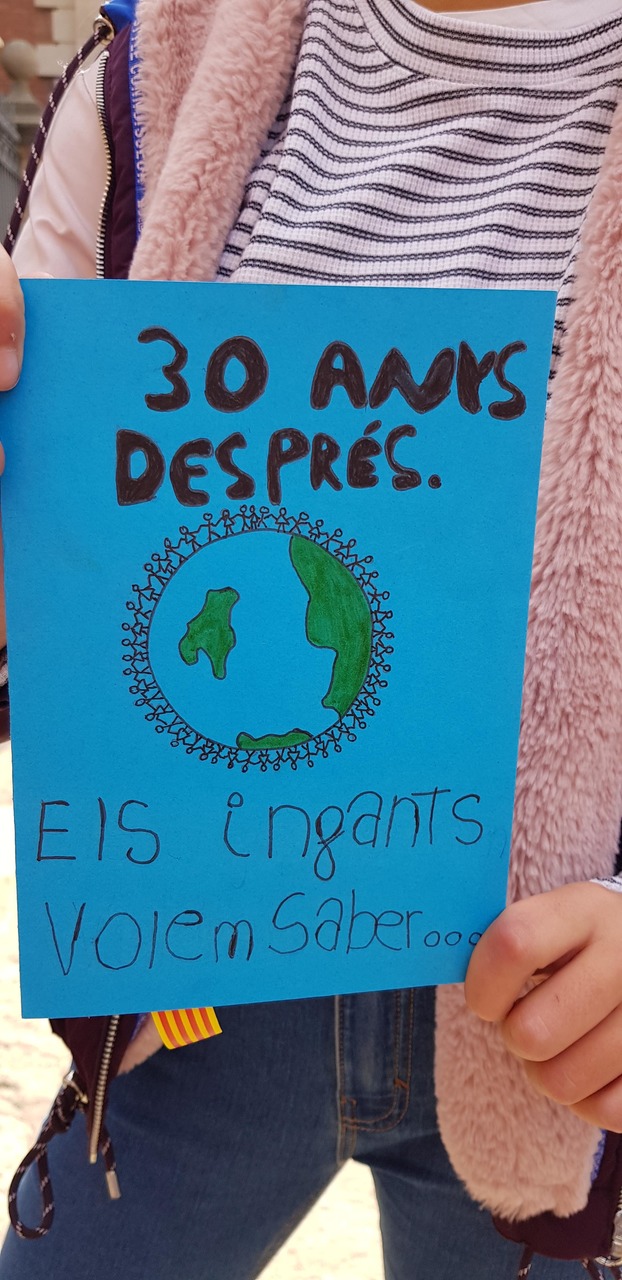 30 ANYS
DESPRÉS.
Els ingants
Volem Saber...